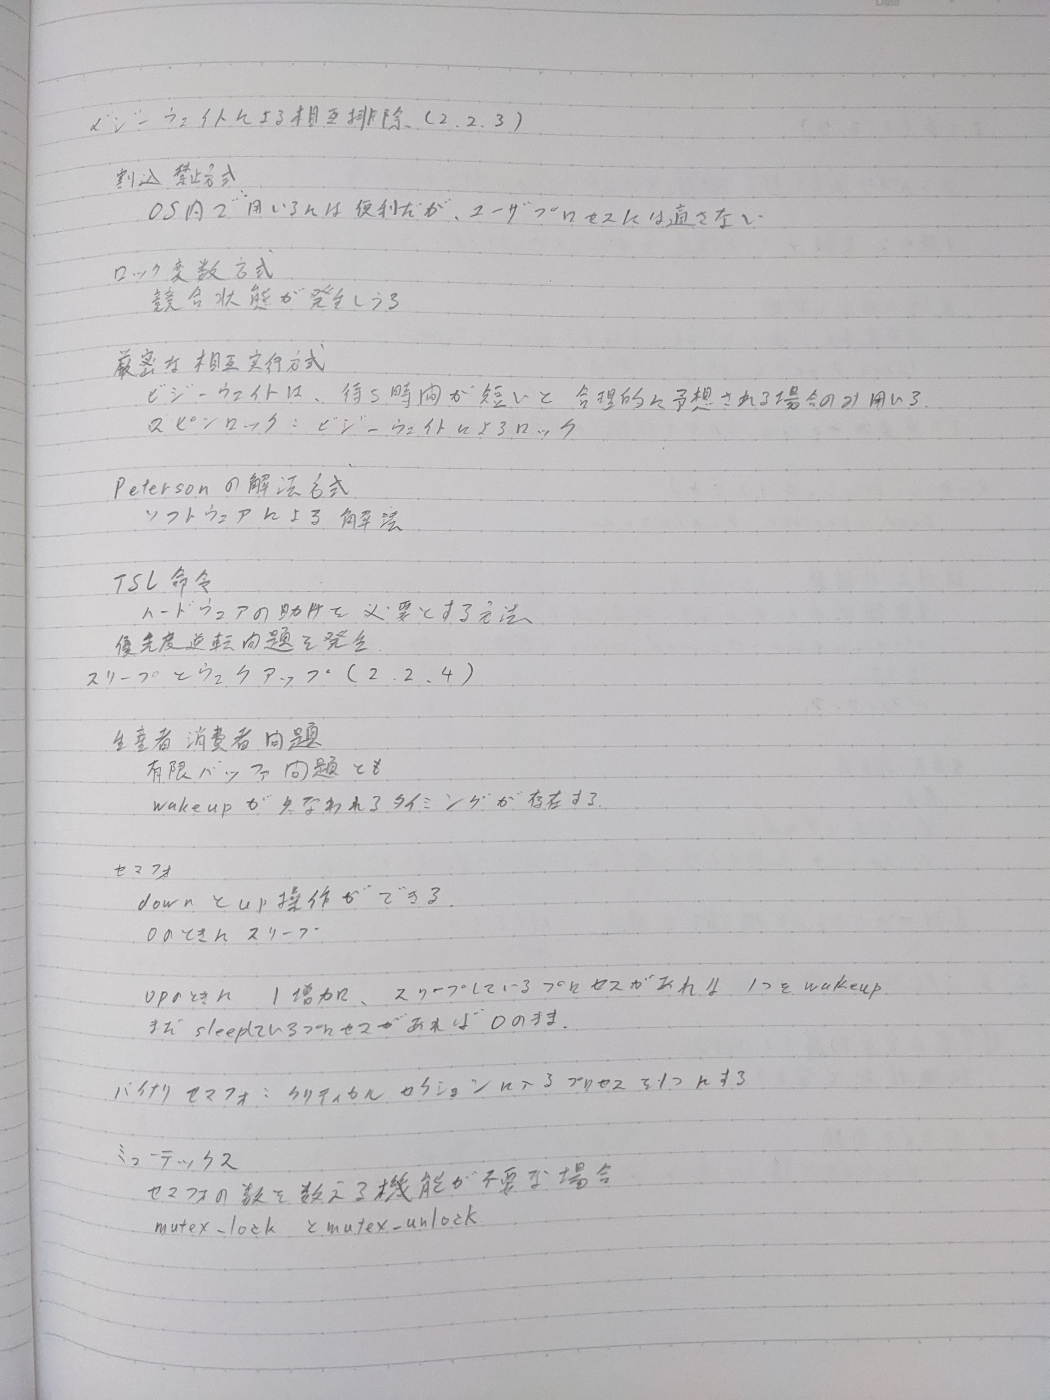 ビジーウェイトによる相互排除 (2.2.3)
割込禁止方式
OS内で用いるには便利だが、ユーザプロセスには適さない
ロック変数方式
競合状態が発生しうる
厳密な相互実行方式
ビジーウェイトは、待ち時間が短いと合理的に予想される場合のみ用いる.
スピンロック：ビジーウェイトによるロック
Petersonの解法方式
ソフトウェアによる解法
TSL命令
ハードウェアの助けを必要とする方法
優先度逆転問題を発生
スリープとウェクアップ (2.2.4)
生産者消費者問題
有限バッファ問題とも
wakeupが失なわれるタイミングが存在する.
セマフォ
downとup操作ができる.
0のときにスリープ
upのときに 1増加、スリープしているプロセスがあれば 1つをwakeup
まだsleepしているプロセスがあれば0のまま.
バイナリセマフォ：クリティカルセクションに入るプロセスを1つにする
ミューテックス
セマフォの数を数える機能が不要な場合
mutex_lock とmutex_unlock